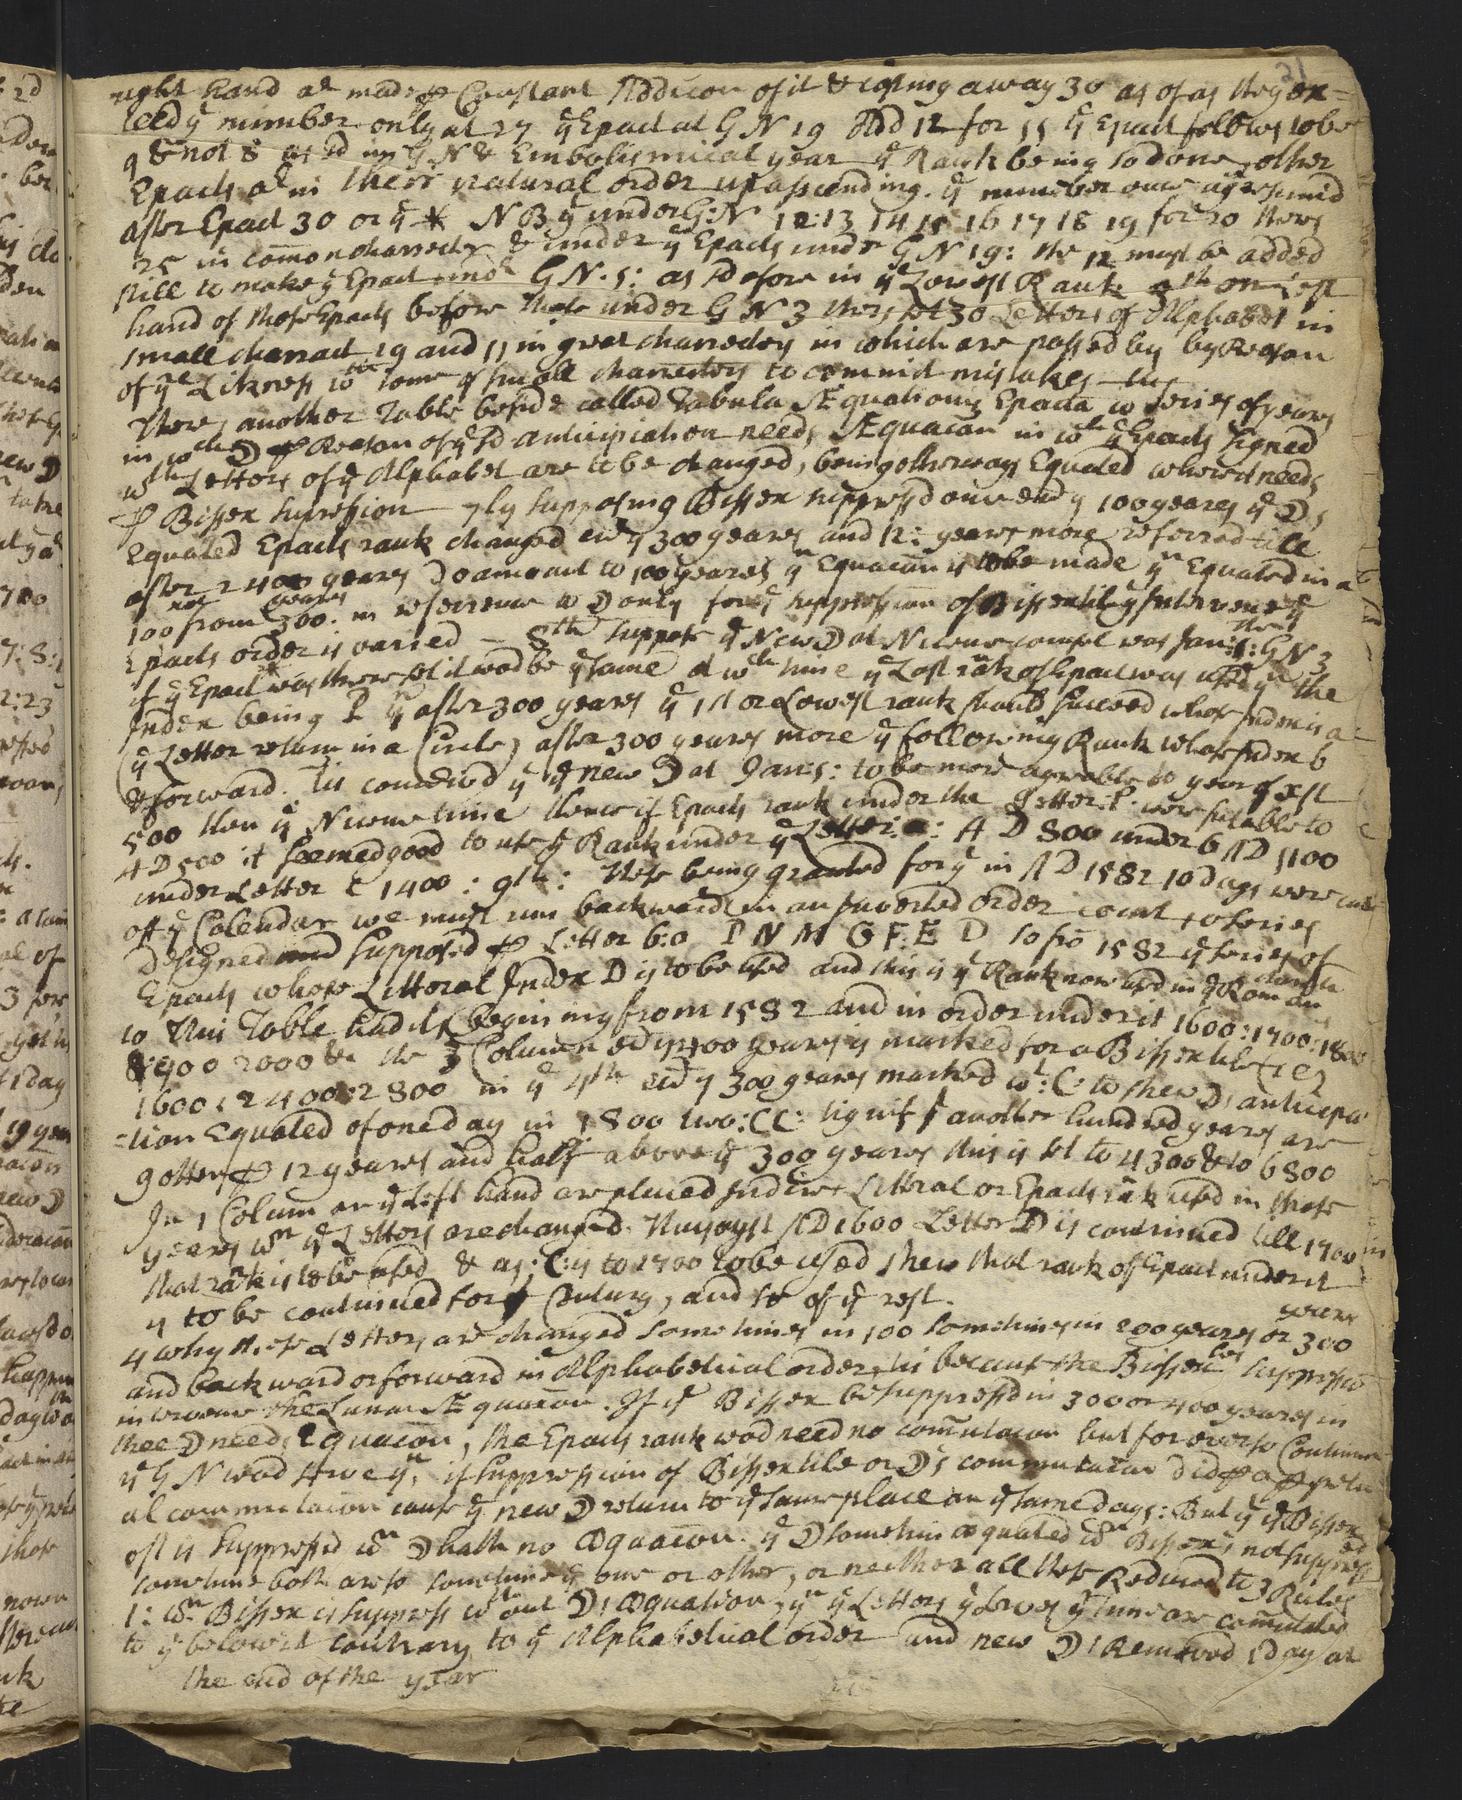 21
right hand ar made ꝑ Constant Addicon of it & casting away 30 as oft as they ex=
ceed yᵉ number only at 27 yᵉ Epact at G N 19 Add 12 for 11 yᵉ Epact follows to be
9 & not 8 as sd in G N & Embolismical year yᵉ Rank being so done other
Epacts ar in their natural order up ascending. yᵉ number once
after Epact 30 or yᵉ * N B yᵗ under G:N 12:13 14 15 16 17 18 19 for 20 theres
25 in comon charracter & under yᵉ Epacts under G N 19: the 12 must be added
still to make yᵉ Epact undʳ G N. 1: as before in yᵉ Lowest Rank on left
hand of those Epacts before those under G N 3 theres set 30 Letters of Alphabet in
small charract 19 and 11 in great charrecters in which are passed by by Reason
of yᵉ Likness wᵗʰ some of small charrecters to comit mistakes
Theres another Table beside called Tabula Æquationis Epacta w series of years
in wᶜʰ D ꝑ Reason of yᵉ sd anticipation needs Æquacon in wᶜʰ yᵉ Epacts signed
wᵗʰ Letters of yᵉ Alphabet are to be changed, being otherways Equated where it needs
ꝑ Bissex supression 7ly supposing Bissex suppressd once evry 100 yeares yᵉ Ds
Equated Epacts rank changed evry 300 yeares and 12: years more referred till
after 2400 yeares Do amount to 100 yeares yⁿ Equacon is to be made yⁿ Equated in a
100 not from 300 years. in reference to D only for yᵉ suppression of Bissextile intervene
Epacts order is varied – 8ᵗʰ suppose yᵉ New D at Nicene counsel was Jan: 1: G N 3
if yᵉ Epact was there set it wod be yᵉ same at wᶜʰ time yᵉ Last rāk of Epact was used yⁿ the
Index being P yⁿ after 300 years yᵉ 1st or Lowest rank should succeed whose Index is a
(yᵉ Letter return in a Circle) after 300 yeares more yᵉ following Rank whose Index b
& forward. Tis conceivd yᵗ yᵉ new D at Jan: 1: to be more agreable to year of xst
500 then yᵉ Nicene time thence if Epacts rank under the Letter: P. were sutable to
A D 500 it seemed good to use yᵉ Rank under yᵉ Letter: a: A D 800 under b A D 1100
under Letter c 1400: 9ᵗʰ: These being granted for yᵗ in A D 1582 10 days were cutt
off yᵉ Calendar we must run backward in an Inverted order count to series
designed and supposed ꝑ Letter b: a P N M G F: E D so frō 1582 yᵉ series of
Epacts whose Littoral Index D is to be used and this is yᵉ Rank now used in yᵉ Roman church
to this Table hath its begining from 1582 and in order under it 1600:1700:1800
&: 900 2000 &c the 3 Column evry 400 yeares is marked for a Bissextile (i e)
1600: 2400: 2800 in yᵉ 4ᵗʰ evry 300 yeares marked wᵗ: C: to shew Ds anticipa
=tion Equated of one day in 1800 two: CC: signify another hundred yeares are
gotten ꝑ 12 yeares and half above yᵉ 300 yeares this is set to 4300 & to 6800
In 1 Colum on yᵉ Left hand are placed Indices Litteral or Epacts rāk used in those
yeares wⁿ yᵉ Letters are changed. Thus ags A D 1600 Letter D is continued till 1700
that rāk is to be used & as: C: is to 1700 to be used shew that rank of Epact under it
is to be continued for yᵗ Century, and so of yᵉ rest.
4 why these Letters are changed some times in 100 sometimes in 200 yeares or 300 years
and backward or forward in Alphabetical order, tis because the Bissex hes suppressio
intervene the Lunar Æquacon. If yᵉ Bissex be suppressd in 300 or 400 yeares in
thee D needs Equacon, the Epacts rank wod need no comutacon but for over to Continue
yᵉ G N wod serve yⁿ, if suppression of Bissextile or Ds commutacon did ꝑ a ꝑpetu
al commutacon cause yᵉ new D return to yᵉ same place on yᵉ same days: But yᵗ yᵉ Bissex
oft is suppressed wⁿ D hath no Æquacon. yᵉ D sometims æquated wⁿ Bissex is not suppressed
sometime both are so sometimes yᵉ one or other, or neither all these Reduced to 3 Rules
1: Wⁿ Bissex is suppress wᵗʰout Ds æquation, yⁿ yᵉ Letters yᵗ serves yᵗ time are comutated
to yᵉ below it contrary to yᵉ Alphabetical order and new Ds Removed 1 day at
the end of the year